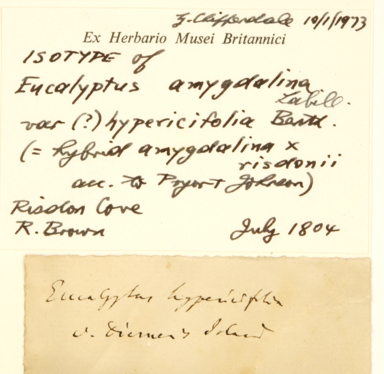 G. Chippendale 10/1/1973
Ex Herbario Musei Britannici
ISOTYPE of
Eucalyptus amygdalina
Labill.
var (?) hypericifolia Benth.
(= hybrid amygdalina x
risdonii
acc. to Pryor & Johnson)
Risdon Cove
R. Brown July 1804
Eucalyptus hypericifolia
v. Diemen's Island